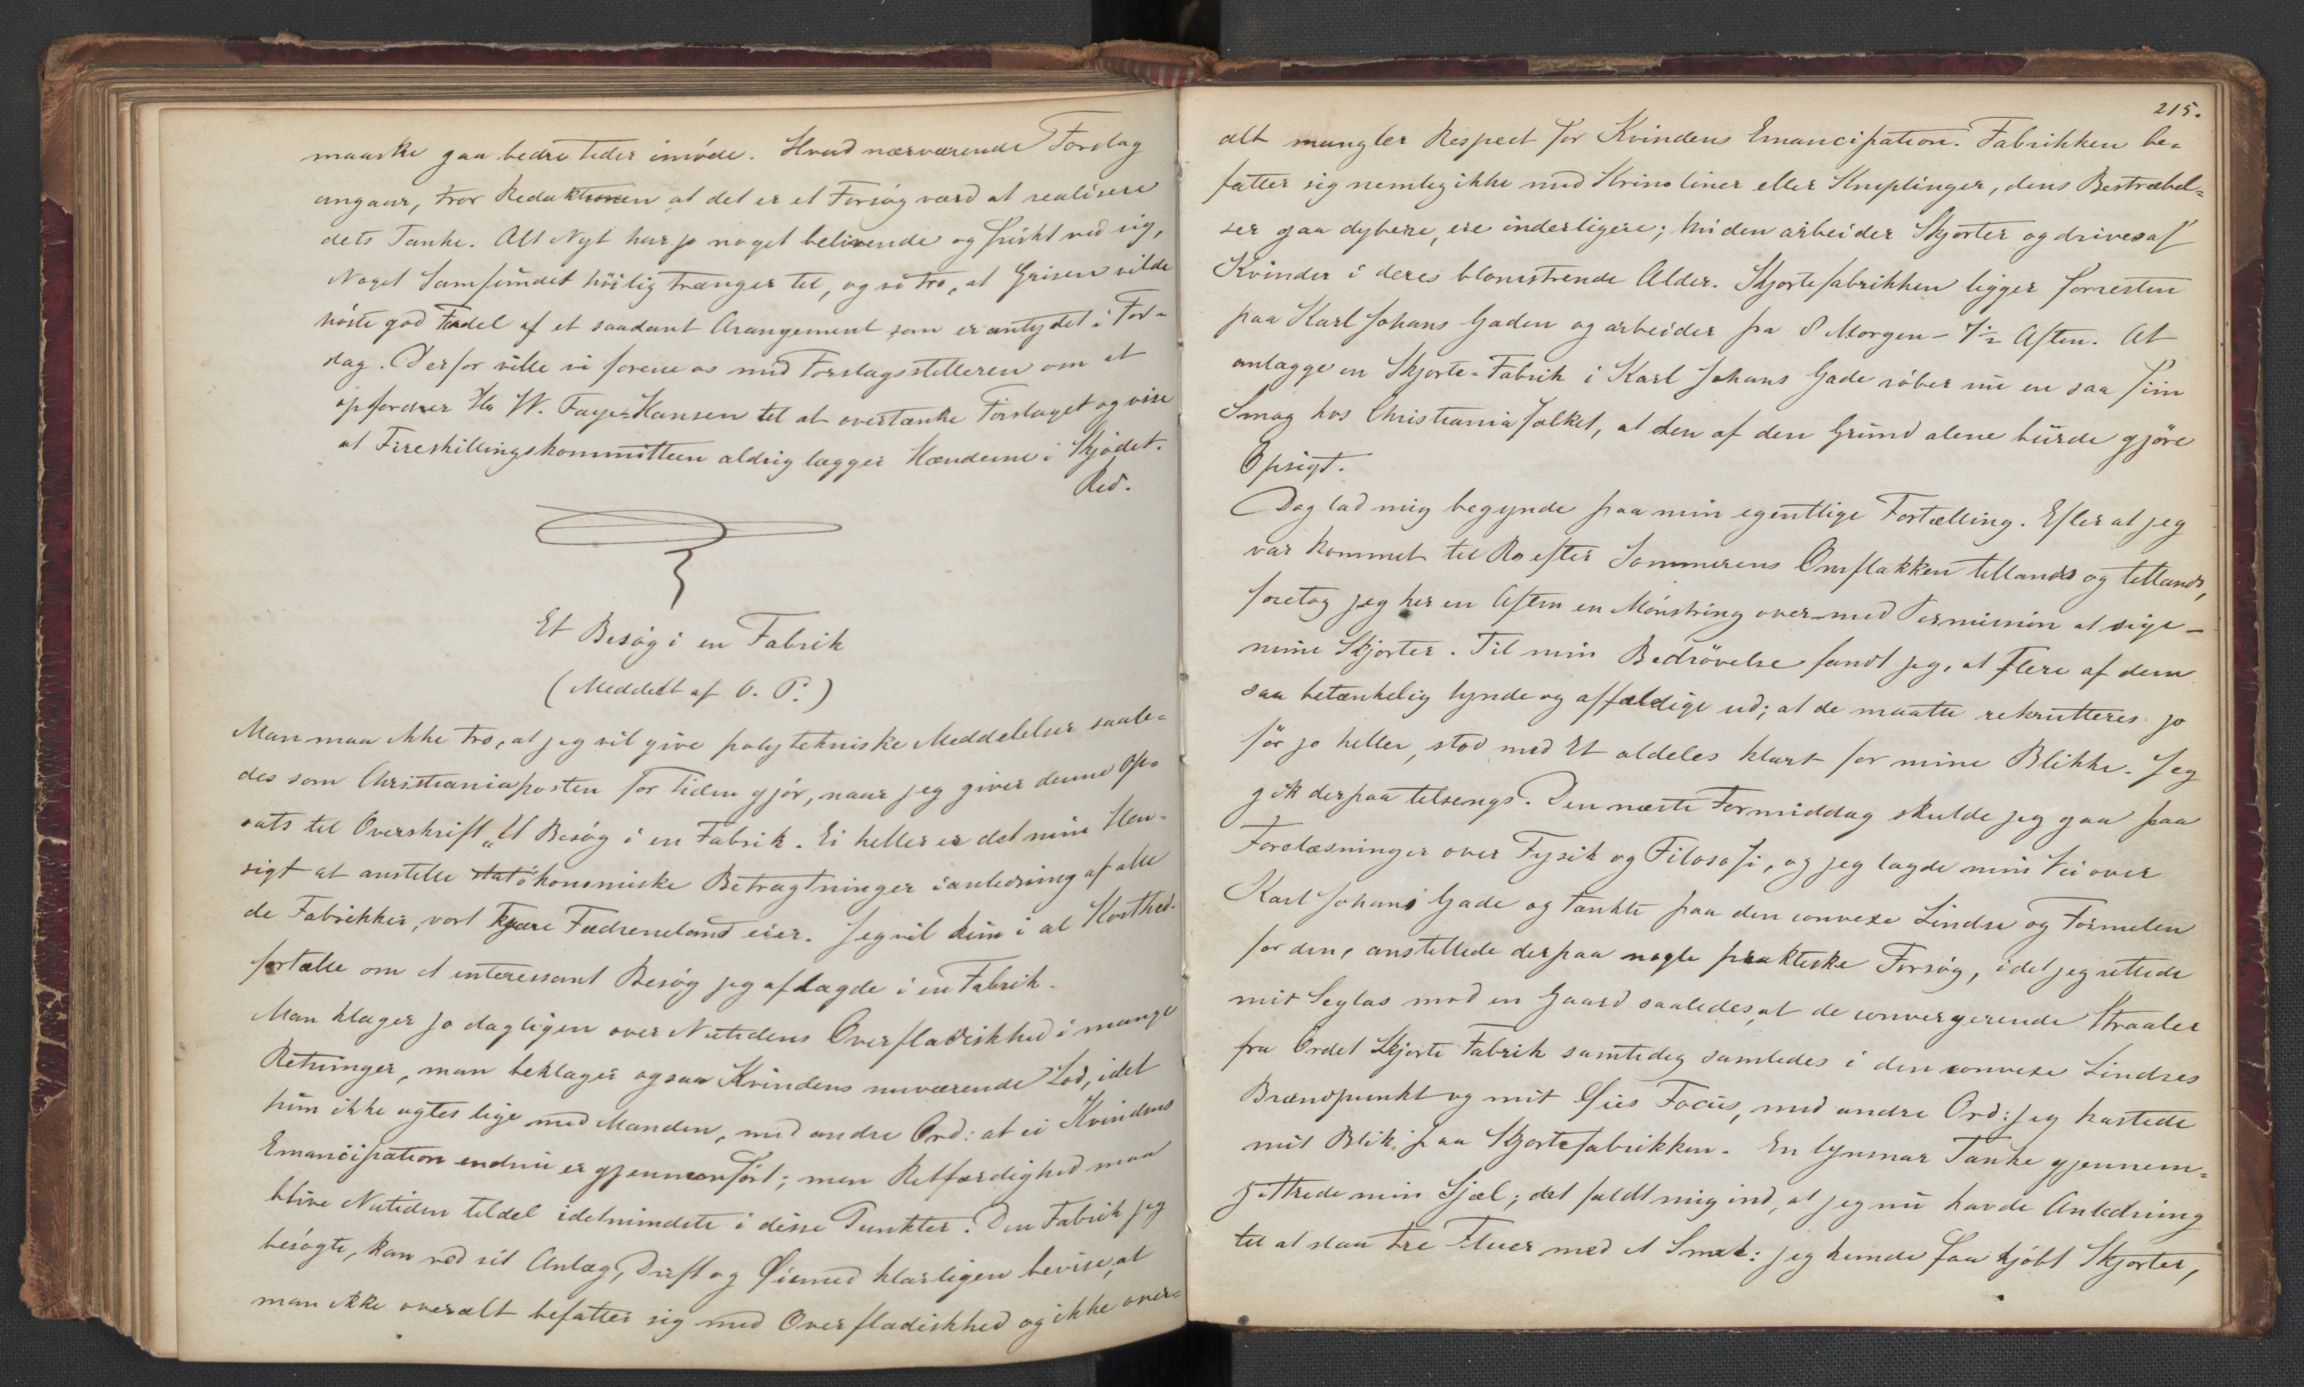 maaske gaa bedre tider imøde. Hvad nærværende Forslag
angaar, tror Redaktionen at det er et Forsøg værd at realisere
dets Tanke. Alt Nyt har jo noget belivende og friskt ved sig,
Noget Samfundet høilig trænger til, og vi tro, at Grisen vilde
høste god Fordel af et saadant Arangement som er antydet i For-
slag. Derfor ville vi forene os med Forslagsstilleren om at
opfordrer Hr W. Faye-Hansen til at overtænke Forslaget og vise
at Fireskillingskommitteen aldrig lægger Hænderne i Skjødet.
Red.
Et Besøg i en Fabrik
(Meddelt af O. P.)
Man maa ikke tro, at jeg vil give polytekniske Meddelelser saale-
des som Christianiaposten for Tiden gjør, naar jeg giver denne Op-
sats til Overskrift „Et Besøg i en Fabrik. Ei heller er det min Hen-
sigt at anstille statøkonomiske Betragtninger ianledning af alle
de Fabrikker, vort kjære Fædreneland eier. Jeg vil kun i al Korthed
fortælle om et interessant Besøg jeg aflagde i en Fabrik.
Man klager jo dagligen over Nutidens Overfladiskhed i mange
Retninger, man beklager ogsaa Kvindens nuværende Lod, idet
hun ikke agtes lige med Manden, med andre Ord: at ei Kvindens
Emancipation endnu er gjennemført; men Retfærdighed maa
blive Nutiden tildel idetmindste i disse Punkter. Den Fabrik jeg
besøgte, kan ved sit Anlæg, Drift og Øiemed klarligen bevise, at
man ikke overalt befatter sig med Overfladiskhed og ikke over-
215.
alt mangler Respect for Kvindens Emancipation. Fabrikken be-
fatter sig nemlig ikke med Krinoliner eller Kniplinger, dens Bestræbel-
ser gaa dybere, ere inderligere; thi den arbeider Skjorter og drives af
Kvinder i deres blomstrende Alder. Skjortefabrikken ligger forresten
paa Karl Johans Gaden og arbeider fra 8 Morgen - 7½ Aften. At
anlægge en Skjorte-Fabrik i Karl Johans Gade røber nu en saa fin
Smag hos Christianiafolket, at den af den Grund alene burde gjøre
Opsigt.
Dog lad mig begynde paa min egentlige Fortælling. Efter at jeg
var kommet til Ro efter Sommerens Omflakken tillands og tilvands,
foretog jeg her en Aften en Mønstring over - med Permission at sige -
mine Skjorter. Til min Bedrøvelse fandt jeg, at Flere af dem
saa betænkelig tynde og affældige ud; at de maatte rekrutteres jo
før jo heller, stod med Et aldeles klart for mine Blikke. Jeg
gik derpaa tilsengs. Den næste Formiddag skulde jeg gaa paa
Forelæsninger over Fysik og Filosofi, og jeg lagde min Vei over
Karl Johans Gade og tænkte paa den convexe Lindse og Formelen
for den, anstillede derpaa nogle praktiske Forsøg, idet jeg rettede
mit Seglas mod en Gaard saaledes, at de convergerende Straaler
fra Ordet Skjorte Fabrik samtidig samledes i den convexe Lindses
Brændpunkt og mit Øies Focus, med andre Ord: jeg kastede
mit Blik paa Skjortefabrikken. En lynsnar Tanke gjennem-
zittrede min Sjæl; det faldt mig ind, at jeg nu havde Anledning
til at slaa tre Fluer med et Smæk: jeg kunde faa kjøbt Skjorter,